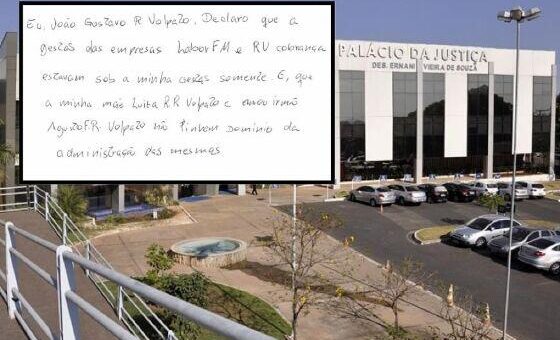 Eu, João Gustavo R Volpato. Declaro que a
gestão das empresas Labor FM e RV cobrança
estavam sob a minha gestão somente. E, que
a minha mãe Luiza R R Volpato e meu irmão
Augusto F.R Volpato não tinham dominio da
administração das mesmas.
PALÁCIO DA JUSTIÇA
DES. ERNANI VIEIRA DE SOUZA